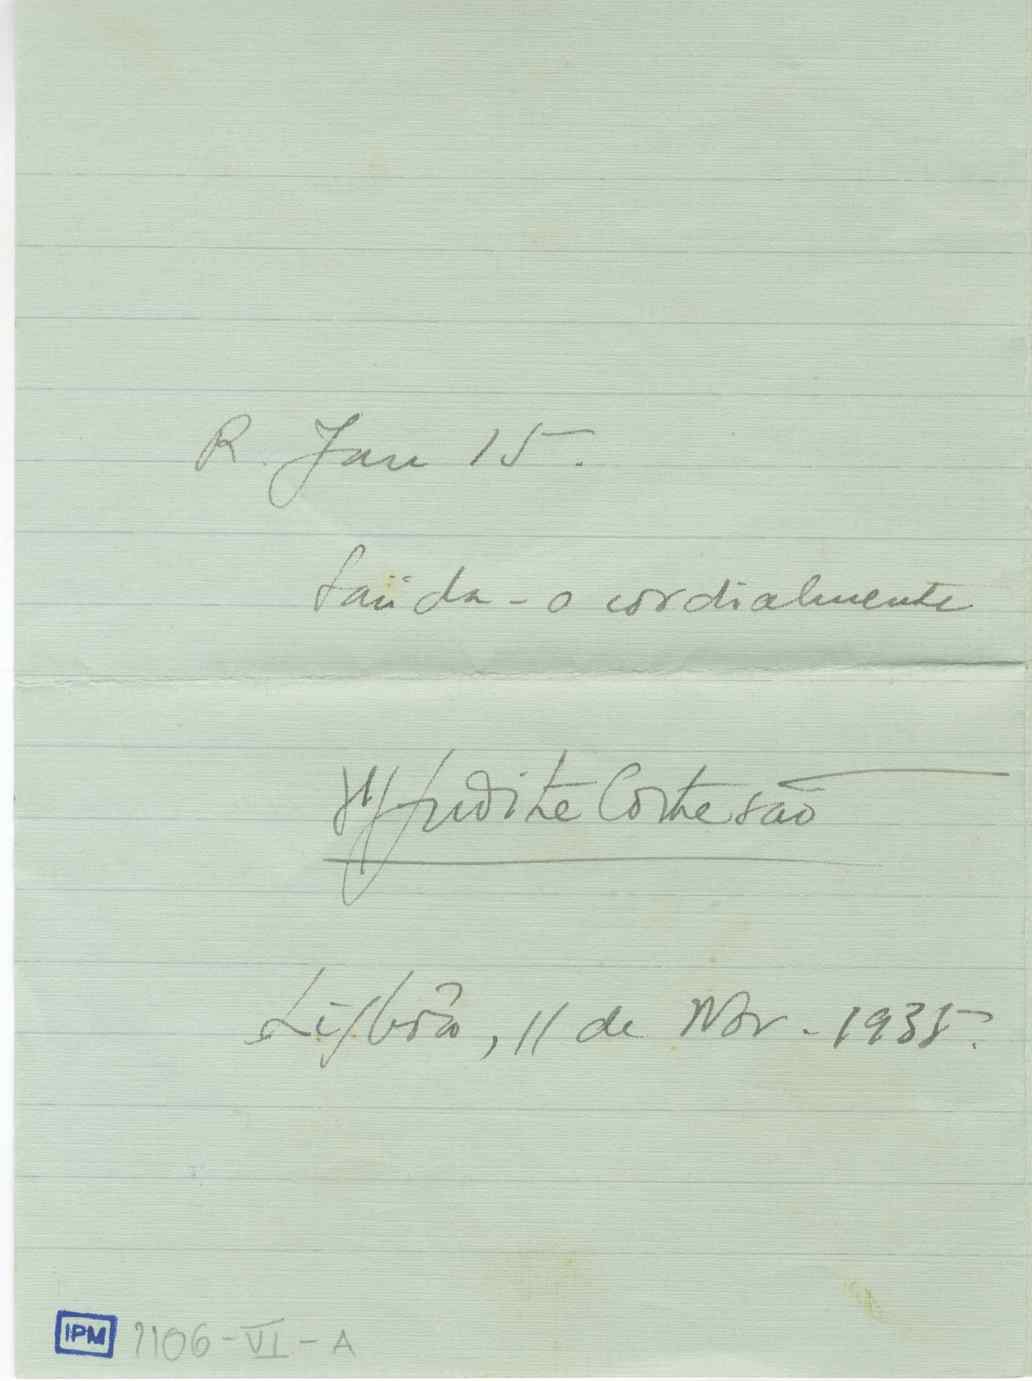 R. Jau 15.
Saúda-o cordialmente
Mª Judite Cortesão
Lisbôa, 11 de Nov. 1935.
IPM 1106-VI-A